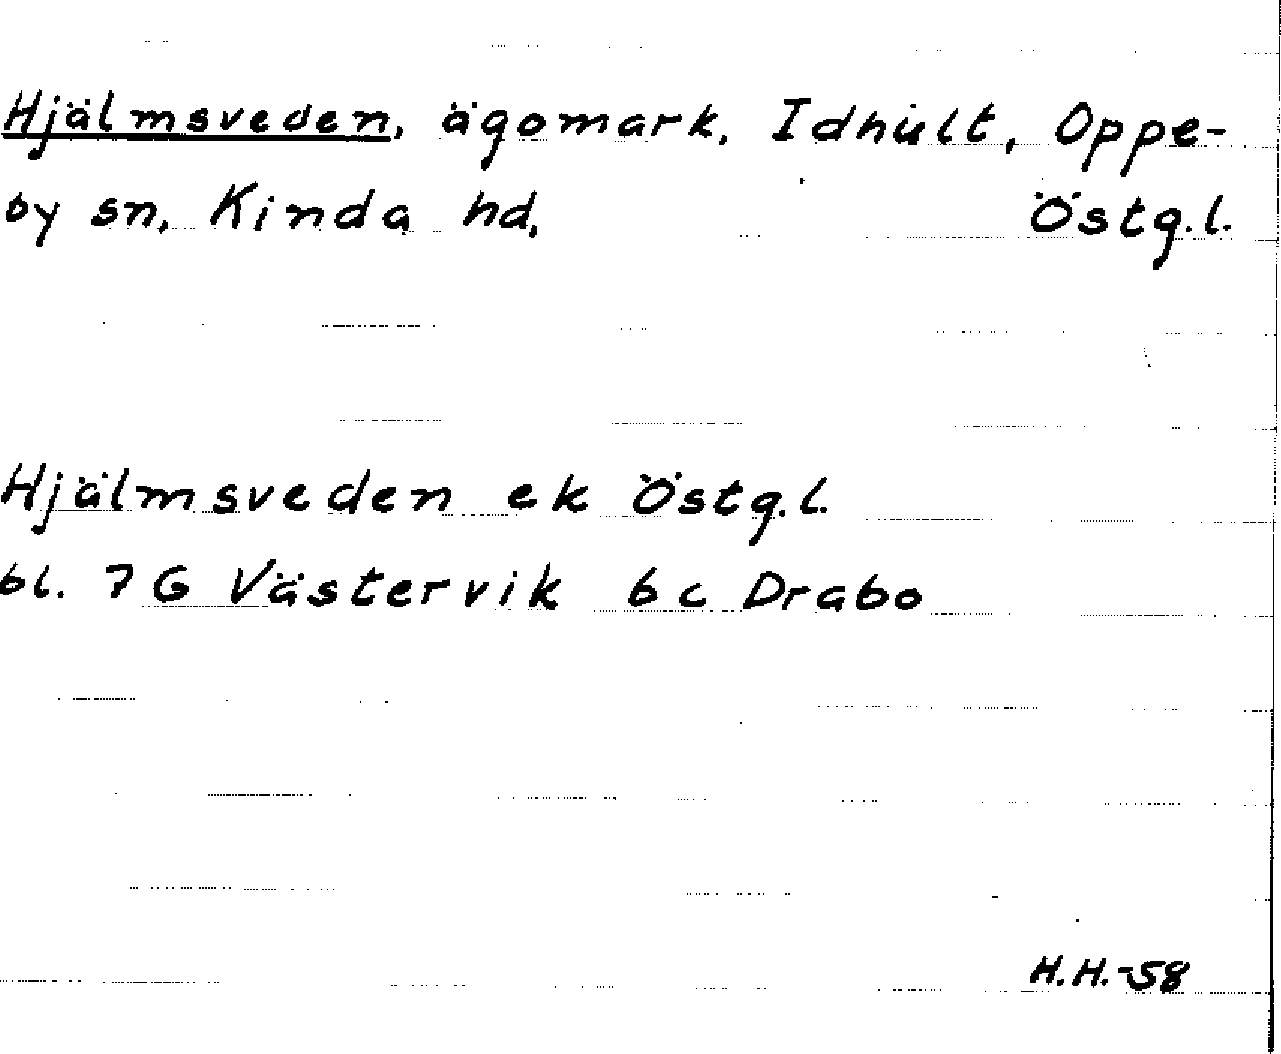 Hjälmsveden, ägomark, Idhult, Oppe-
by sn, Kinda hd, Östg.l.
Hjälmsveden ek Östg.l.
bl. 7 G Västervik 6 c Drabo
H.H.-58